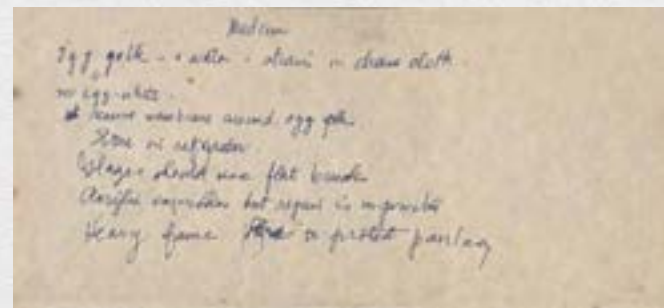 Medium
Egg yolk - + water - strain in cheese cloth.
no egg-white.
remove membrane around egg yolk
Store in refrigerator
should use flat brush
but repair is impossible
Heavy frame to protect painting